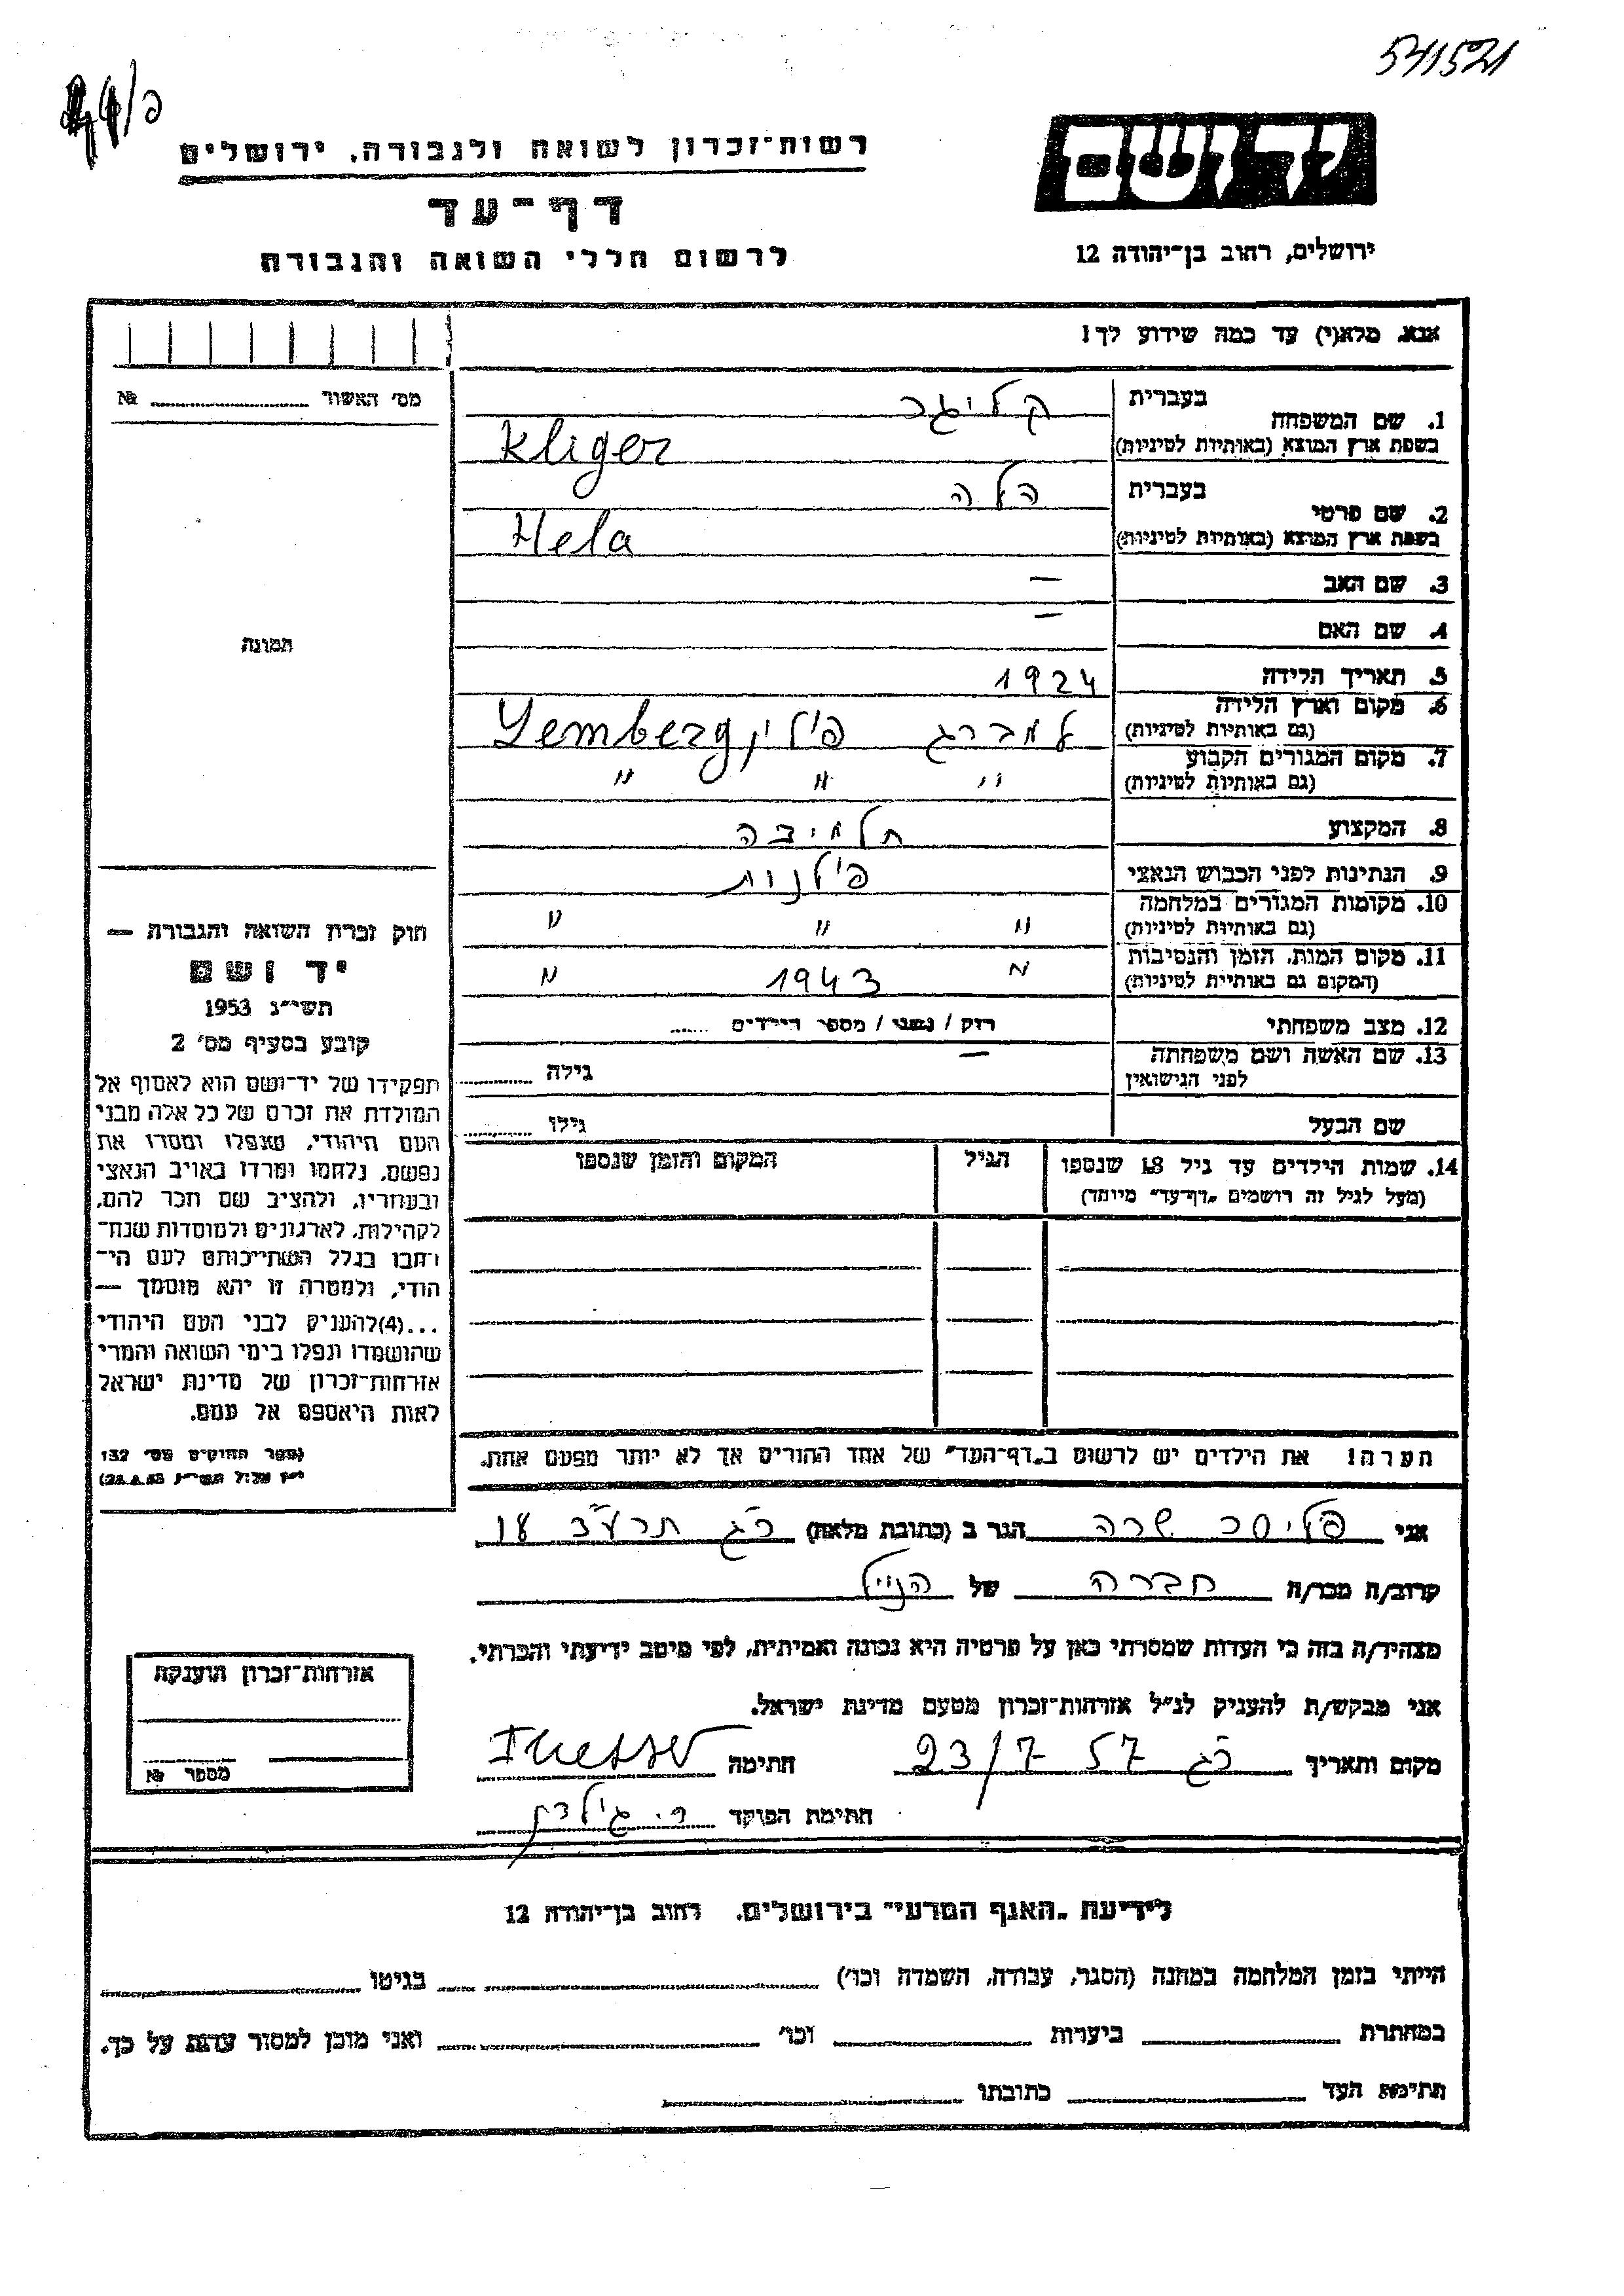 541521
רשות־זכרון לשואה ולגבורה, ירושלים
יד ושם
דף־עד
לרשום חללי השואה והגבורה
ירושלים, רחוב בן־יהודה 12
אנא, מלא(י) עד כמה שידוע לך!
מס׳ האשור № 
1. שם המשפחה
בעברית קליגר
בשפת ארץ המוצא (באותיות לטיניות) Kliger
2. שם פרטי
בעברית הלה
בשפת ארץ המוצא (באותיות לטיניות) Hela
3. שם האב —
4. שם האם —
תמונה
5. תאריך הלידה 1924
6. מקום וארץ הלידה
(גם באותיות לטיניות) למברג פולין Lemberg
7. מקום המגורים הקבוע
(גם באותיות לטיניות) " " "
8. המקצוע תלמידה
9. הנתינות לפני הכבוש הנאצי פולנית
10. מקומות המגורים במלחמה
(גם באותיות לטיניות) " " "
11. מקום המות, הזמן והנסיבות
(המקום גם באותיות לטיניות) " 1943 "
12. מצב משפחתי רווק / נשוי / מספר הילדים ......
13. שם האשה ושם משפחתה
לפני הנישואין — גילה
שם הבעל גילו
14. שמות הילדים עד גיל 18 שנספו הגיל המקום והזמן שנספו
(מעל לגיל זה רושמים „דף־עד" מיוחד)
הערה! את הילדים יש לרשום ב„דף־העד" של אחד ההורים אך לא יותר מפעם אחת.
חוק זכרון השואה והגבורה —
יד ושם
תשי״ג 1953
קובע בסעיף מס׳ 2
תפקידו של יד־ושם הוא לאסוף אל
המולדת את זכרם של כל אלה מבני
העם היהודי, שנפלו ומסרו את
נפשם, נלחמו ומרדו באויב הנאצי
ובעוזריו, ולהציב שם וזכר להם,
לקהילות, לארגונים ולמוסדות שנח־
רבו בגלל השתייכותם לעם הי־
הודי, ולמטרה זו יהא מוסמך —
...(4)להעניק לבני העם היהודי
שהושמדו ונפלו בימי השואה והמרי
אזרחות־זכרון של מדינת ישראל
לאות היאספם אל עמם.
(ספר החוקים מס׳ 132
אני פליסר שרה הגר ב (כתובת מלאה) רג תרע״ב 18
קרוב/ה מכר/ה חברה של הנ״ל
מצהיר/ה בזה כי העדות שמסרתי כאן על פרטיה היא נכונה ואמיתית, לפי מיטב ידיעתי והכרתי.
אני מבקש/ת להעניק לנ״ל אזרחות־זכרון מטעם מדינת ישראל.
מקום ותאריך רג 23/7 57 חתימה
חתימת הפוקד
אזרחות־זכרון הוענקה
מספר №
לידיעת „האגף המדעי" בירושלים, רחוב בן־יהודה 12
הייתי בזמן המלחמה במחנה (הסגר, עבודה, השמדה וכו׳) בגיטו
במחתרת ביערות וכו׳ ואני מוכן למסור עדות על כך.
חתימת העד כתובתו